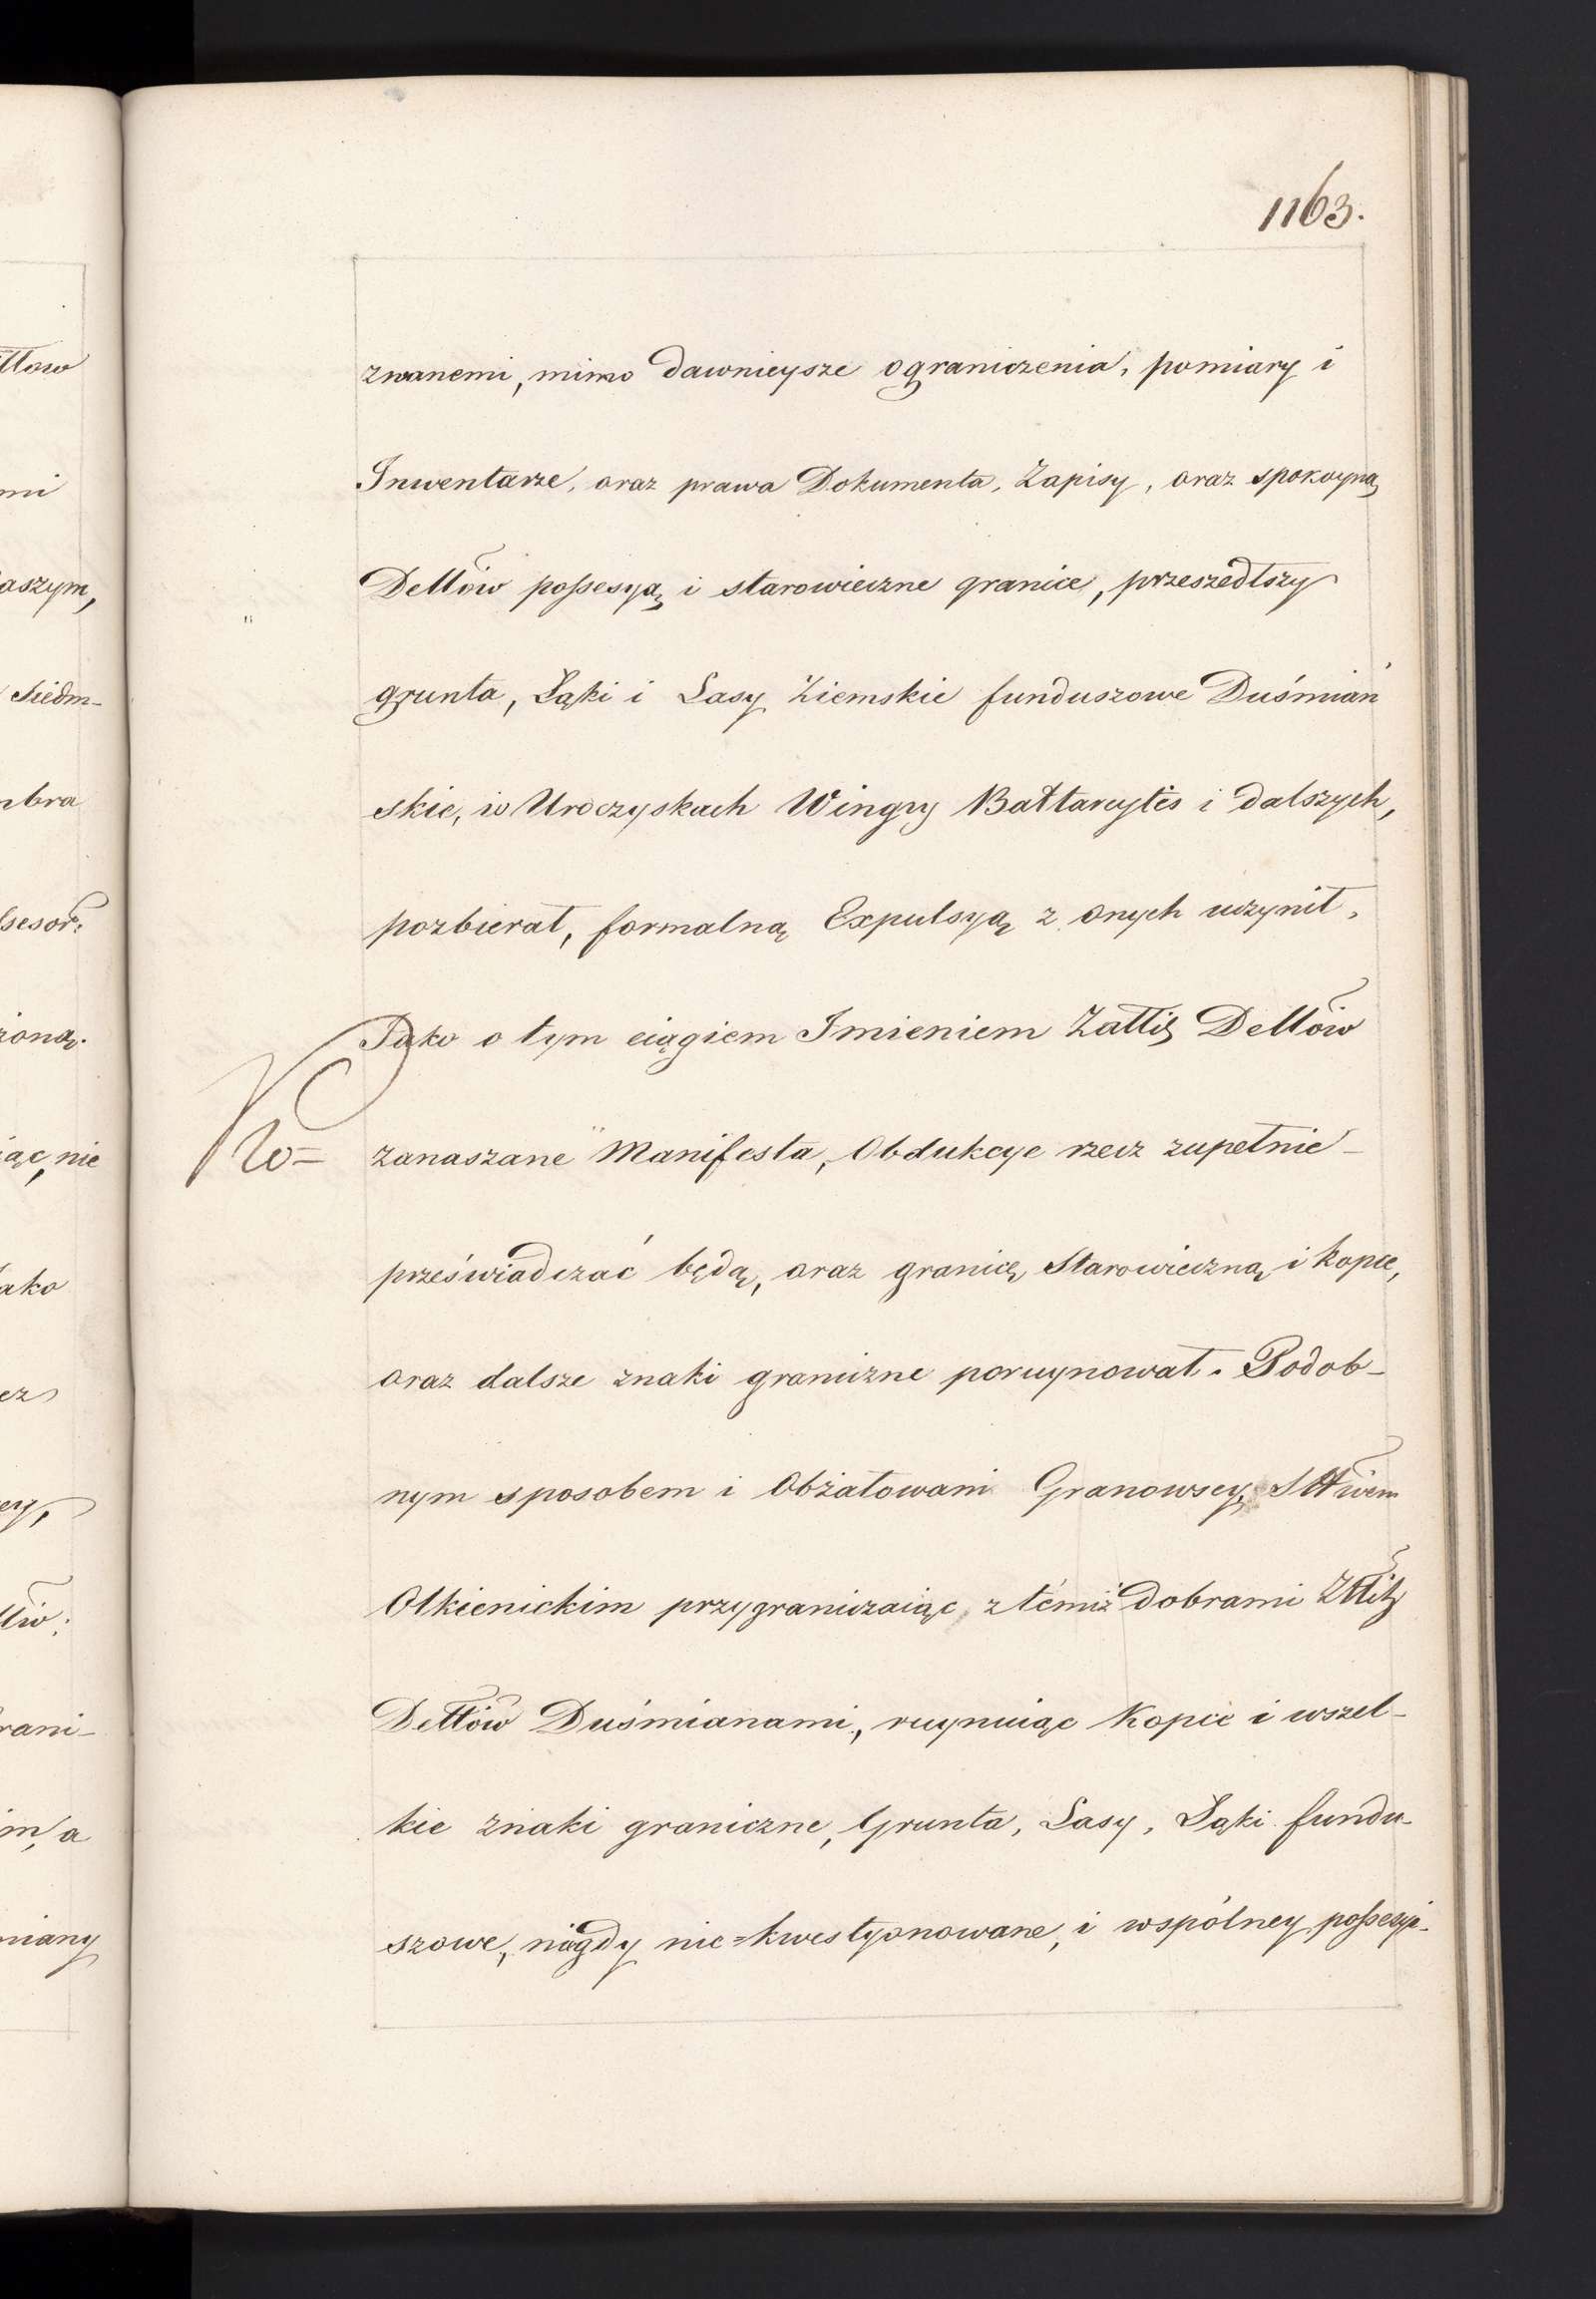 1163.
zwanemi, mimo dawnieysze ograniczenia, pomiary i
Inwentarze, oraz prawa Dokumenta, Zapisy, oraz spokoyną
Dellów possesyą i starowieczne granice, przeszedłszy
grunta, Łąki i Lasy Ziemskie funduszowe Duśmiań
skie, w Uroczyskach Wingry Bałtarcytes i dalszych,
pozbierał, formalną Expulsyą z onych uczynił,
Jako o tym ciągiem Imieniem Załlich Dellów
zanaszane Manifesta, Obdukcye rzecz zupełnie
przeświadczać będą, oraz granicę Starowieczną i kopce,
oraz dalsze znaki graniczne poruynował. Podob-
nym sposobem i Obżałowani Granowscy, Sttwem
Olkienickim przygraniczaiąc z témiż dobrami Żłłich
Dełłów Duśmianami, ruynuiąc Kopce i wszel-
kie znaki graniczne, Grunta, Lasy, Łąki fundu-
szowe, nigdy nie=kwestyonowane, i wspólney possesyi.